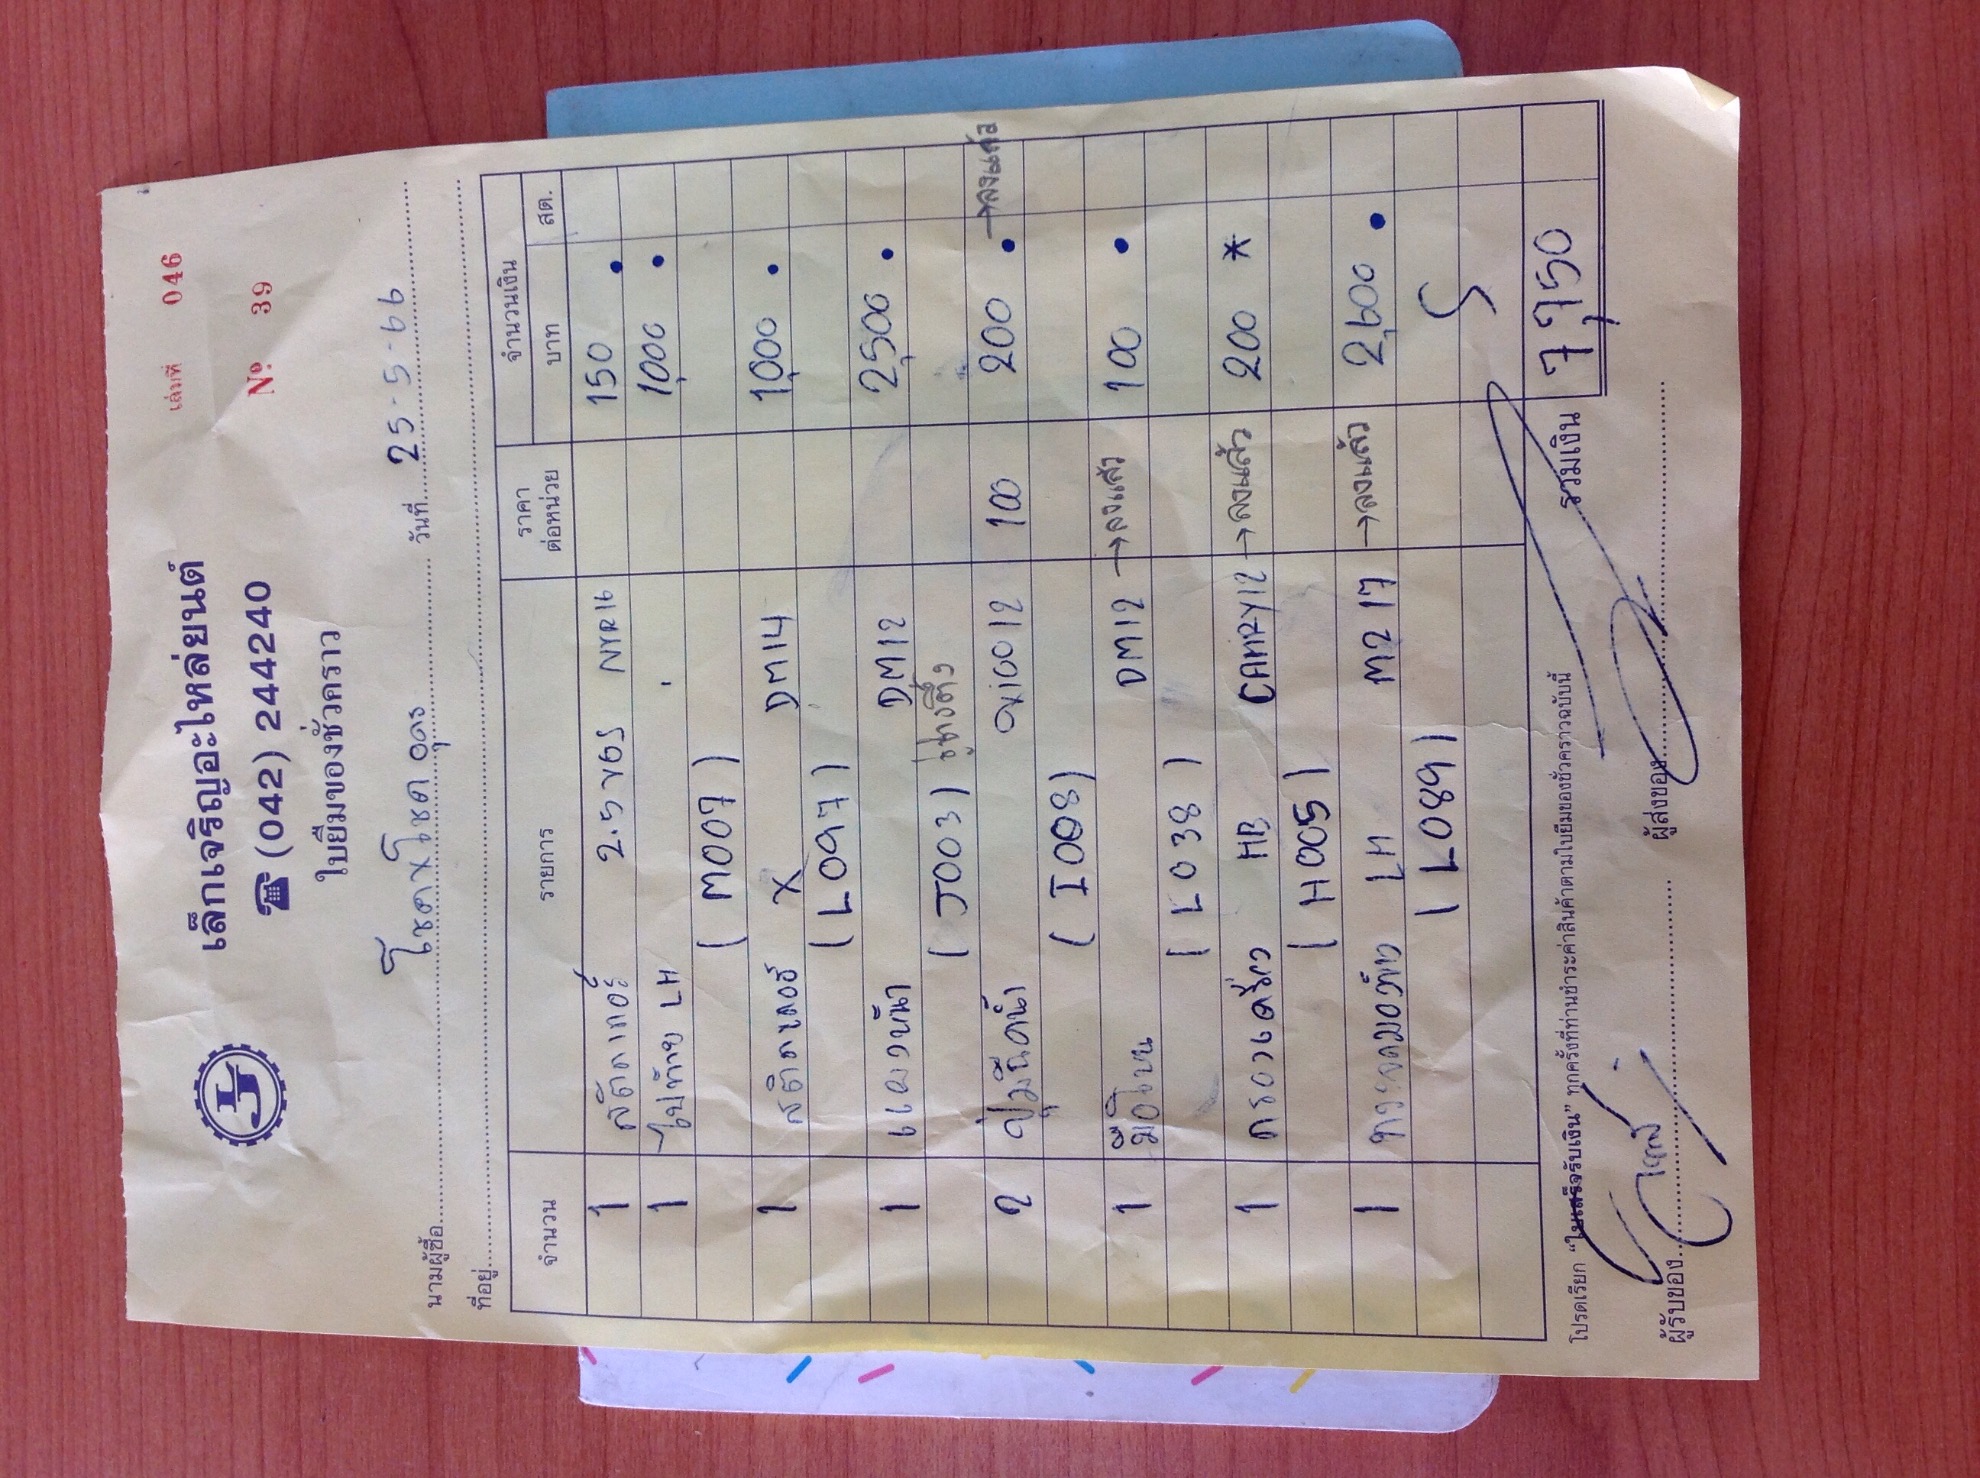 เล่มที่ 046
เล็กเจริญอะไหล่ยนต์
☎ (042) 244240
Nº 39
ใบยืมของชั่วคราว
นามผู้ซื้อ โชคxโชค อุดร วันที่ 25-5-66
ที่อยู่
จำนวน รายการ ราคาต่อหน่วย จำนวนเงิน
บาท สต.
1 สติกเกอร์ 2.5 VGS NYR16 150
1 ไฟท้าย LH 1,000
(M007)
1 สติกเกอร์ X DM14 1,000
(L097)
1 แผงหน้า DM12 2,500
(J003)
2 100 200 →ลงแล้ว
(I008)
1 มือโหน DM12 →ลงแล้ว 100
(L038)
1 HB CAMRY12 →ลงแล้ว 200 *
(H005)
1 LH M2 17 →ลงแล้ว 2,600
(L089)
รวมเงิน 7,750
โปรดเรียก "ใบเสร็จรับเงิน" ทุกครั้งที่ท่านชำระค่าสินค้าตามใบยืมของชั่วคราวฉบับนี้
ผู้รับของ ผู้ส่งของ